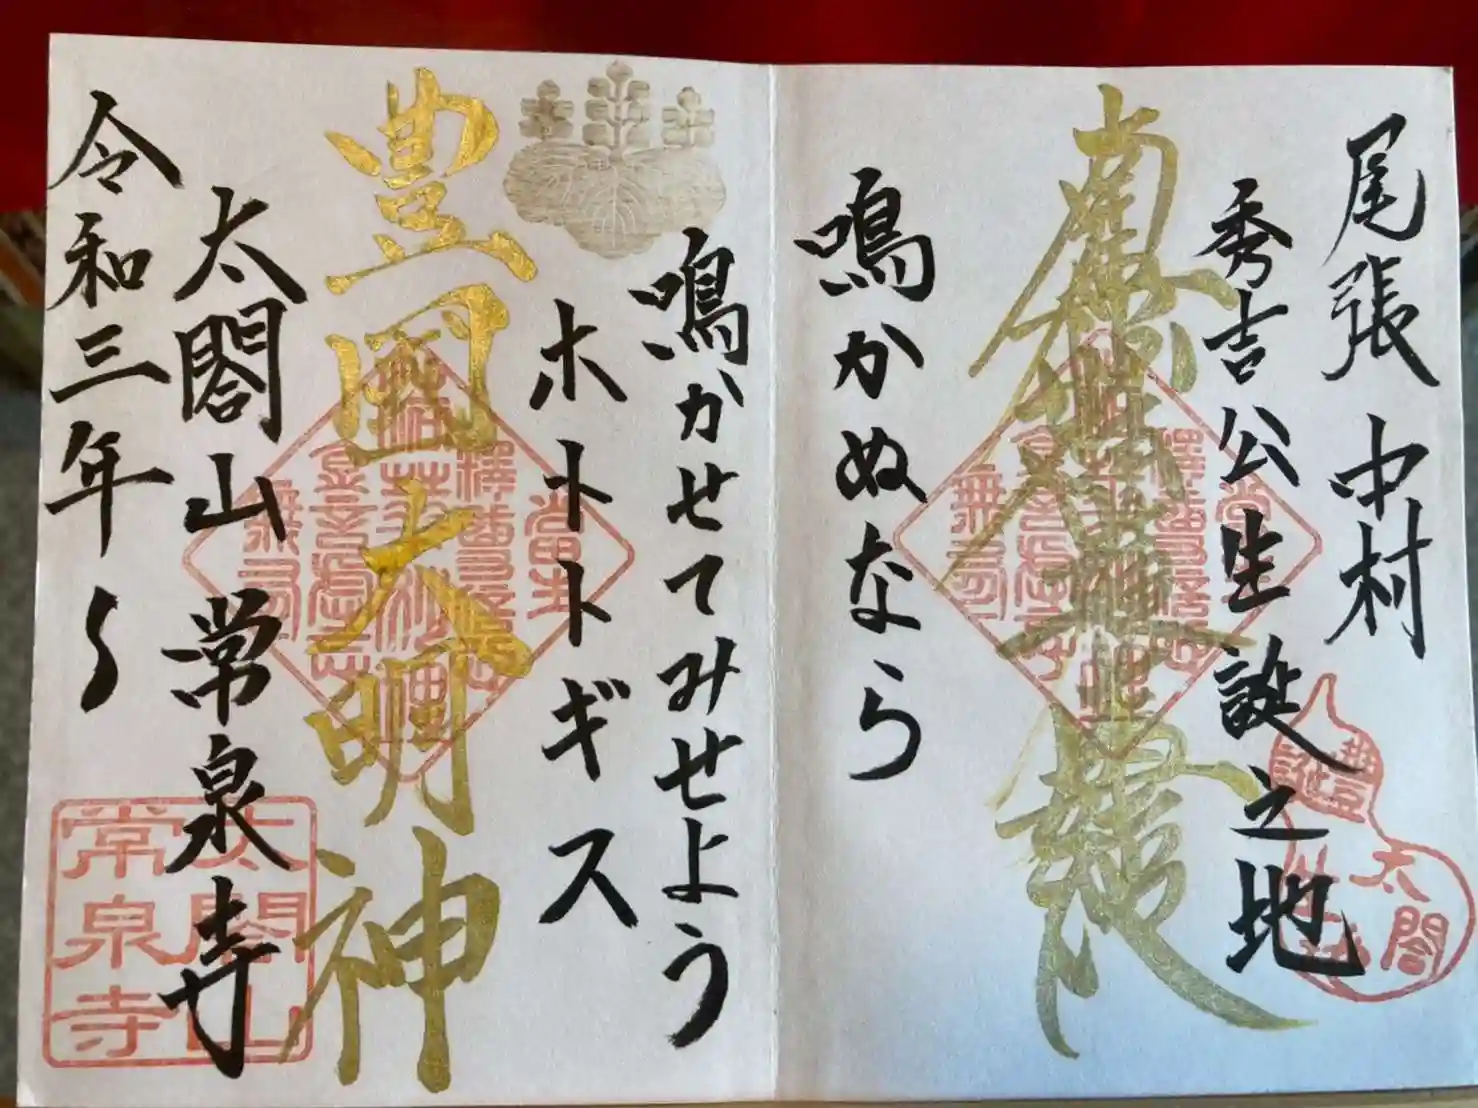 尾張 中村
秀吉公生誕之地
南無妙法蓮華経
鳴かぬなら
鳴かせてみせよう
ホトトギス
豊國大明神
太閤山 常泉寺
令和三年
太閤山
常泉寺
太閤